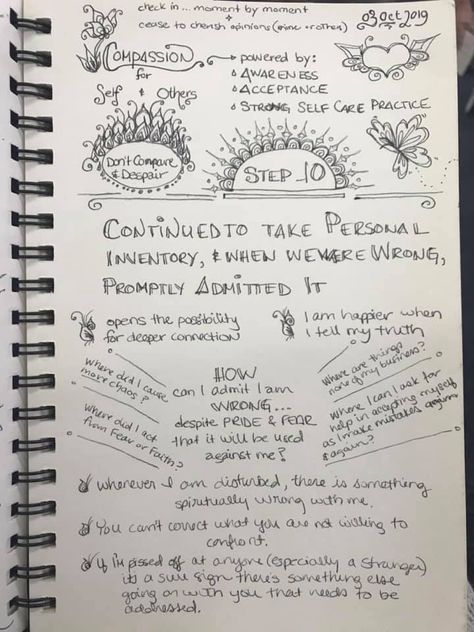 check in... moment by moment
+
cease to cherish opinions (mine or others)
03 Oct 2019
COMPASSION
for
Self & Others
powered by:
AWARENESS
ACCEPTANCE
STRONG SELF CARE PRACTICE
Don't Compare
& Despair
STEP 10
CONTINUED TO TAKE PERSONAL
INVENTORY, & WHEN WE WERE WRONG,
PROMPTLY ADMITTED IT
opens the possibility
for deeper connection
I am happier when
I tell my truth
where did I cause
more chaos?
where did I act
from Fear or Faith?
HOW
can I admit I am
WRONG...
despite PRIDE & FEAR
that it will be used
against me?
where are things
none of my business?
where can I ask for
help in accepting myself
as I make mistakes again
& again?
whenever I am disturbed, there is something
spiritually wrong with me.
You can't correct what you are not willing to
confront.
If I'm pissed off at anyone (especially a stranger)
it's a sure sign there's something else
going on with you that needs to be
addressed.